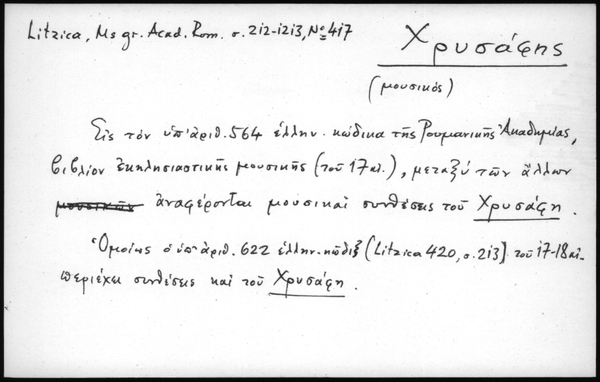 Litzica, Ms gr. Acad. Rom. σ. 212-1213, № 417
Χρυσάφης
(μουσικός)
Εἰς τὸν ὑπ' ἀριθ. 564 ἑλλην. κώδικα τῆς Ρουμανικῆς Ἀκαδημίας,
βιβλίον ἐκκλησιαστικῆς μουσικῆς (τοῦ 17 αἰ.), μεταξὺ τῶν ἄλλων
μουσικῶν ἀναφέρονται μουσικαὶ συνθέσεις τοῦ Χρυσάφη.
Ὁμοίως ὁ ὑπ' ἀριθ. 622 ἑλλην. κώδιξ (Litzica 420, σ. 213] τοῦ 17-18 αἰ.
περιέχει συνθέσεις καὶ τοῦ Χρυσάφη.